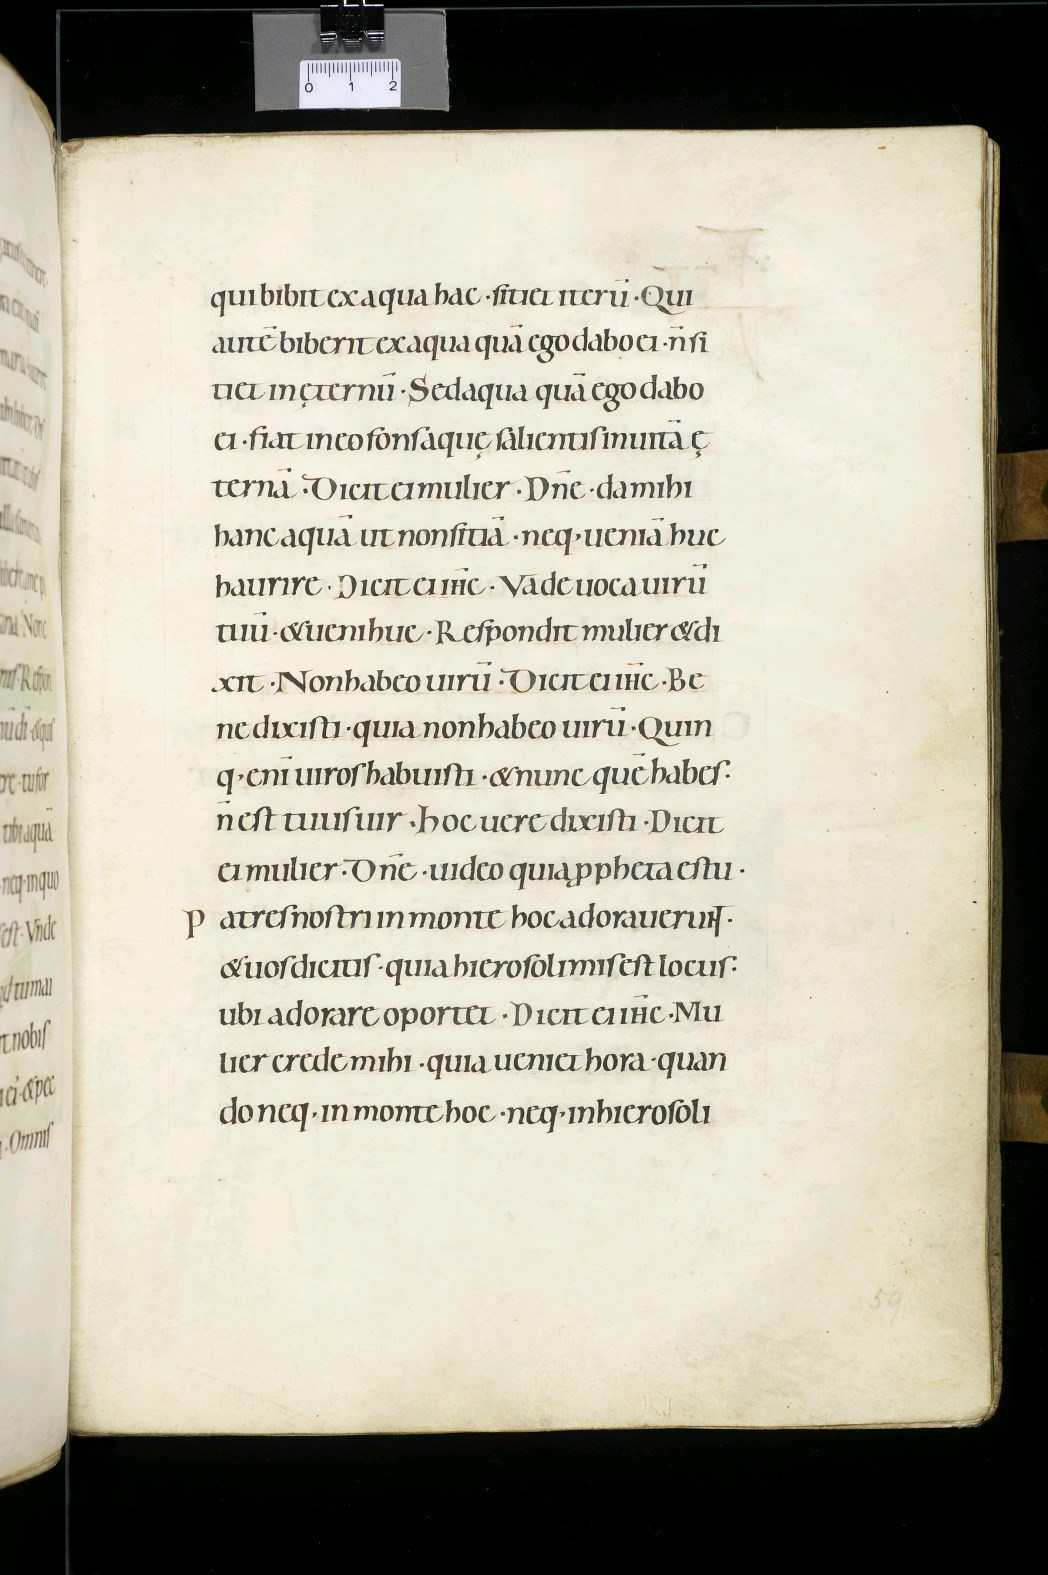 0 1 2
qui bibit ex aqua hac · sitiet iterū · Qui
autē biberit ex aqua quā ego dabo ei · n̄ si
tiet in ęternū · Sed aqua quā ego dabo
ei · fiat in eo fons aquę salientis in uitā ę
ternā · Dicit ei mulier · Dn̄e · da mihi
hanc aquā ut non sitiā · neq· ueniā huc
haurire · Dicit ei ihc̄ · Vade uoca uirū
tuū · & ueni huc · Respondit mulier & di
xit · Non habeo uirū · Dicit ei ihc̄ · Be
ne dixisti · quia non habeo uirū · Quin
q· enī uiros habuisti · & nunc quē habes ·
n̄ est tuus uir · hoc uere dixisti · Dicit
ei mulier · Dn̄e · uideo quia ꝓpheta es tu ·
Patres nostri in monte hoc adorauerunt ·
& uos dicitis · quia hierosolimis est locus ·
ubi adorare oportet · Dicit ei ihc̄ · Mu
lier crede mihi · quia ueniet hora · quan
do neq· in monte hoc · neq· in hierosoli
59